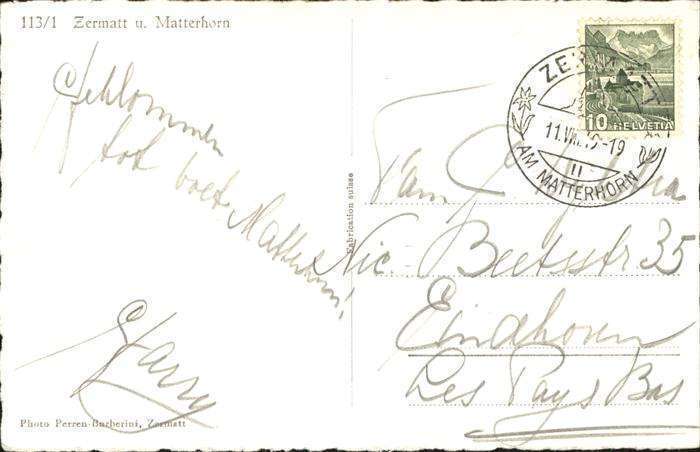 113/1 Zermatt u. Matterhorn
Geklommen
tot voet
Matterhorn!
Harry
Photo Perren-Barberini, Zermatt
Fabrication suisse
10 HELVETIA
ZERMATT
11.VIII.4 -19
AM MATTERHORN
Fam.
Nic. Beetsstr 35
Eindhoven
Les Pays Bas